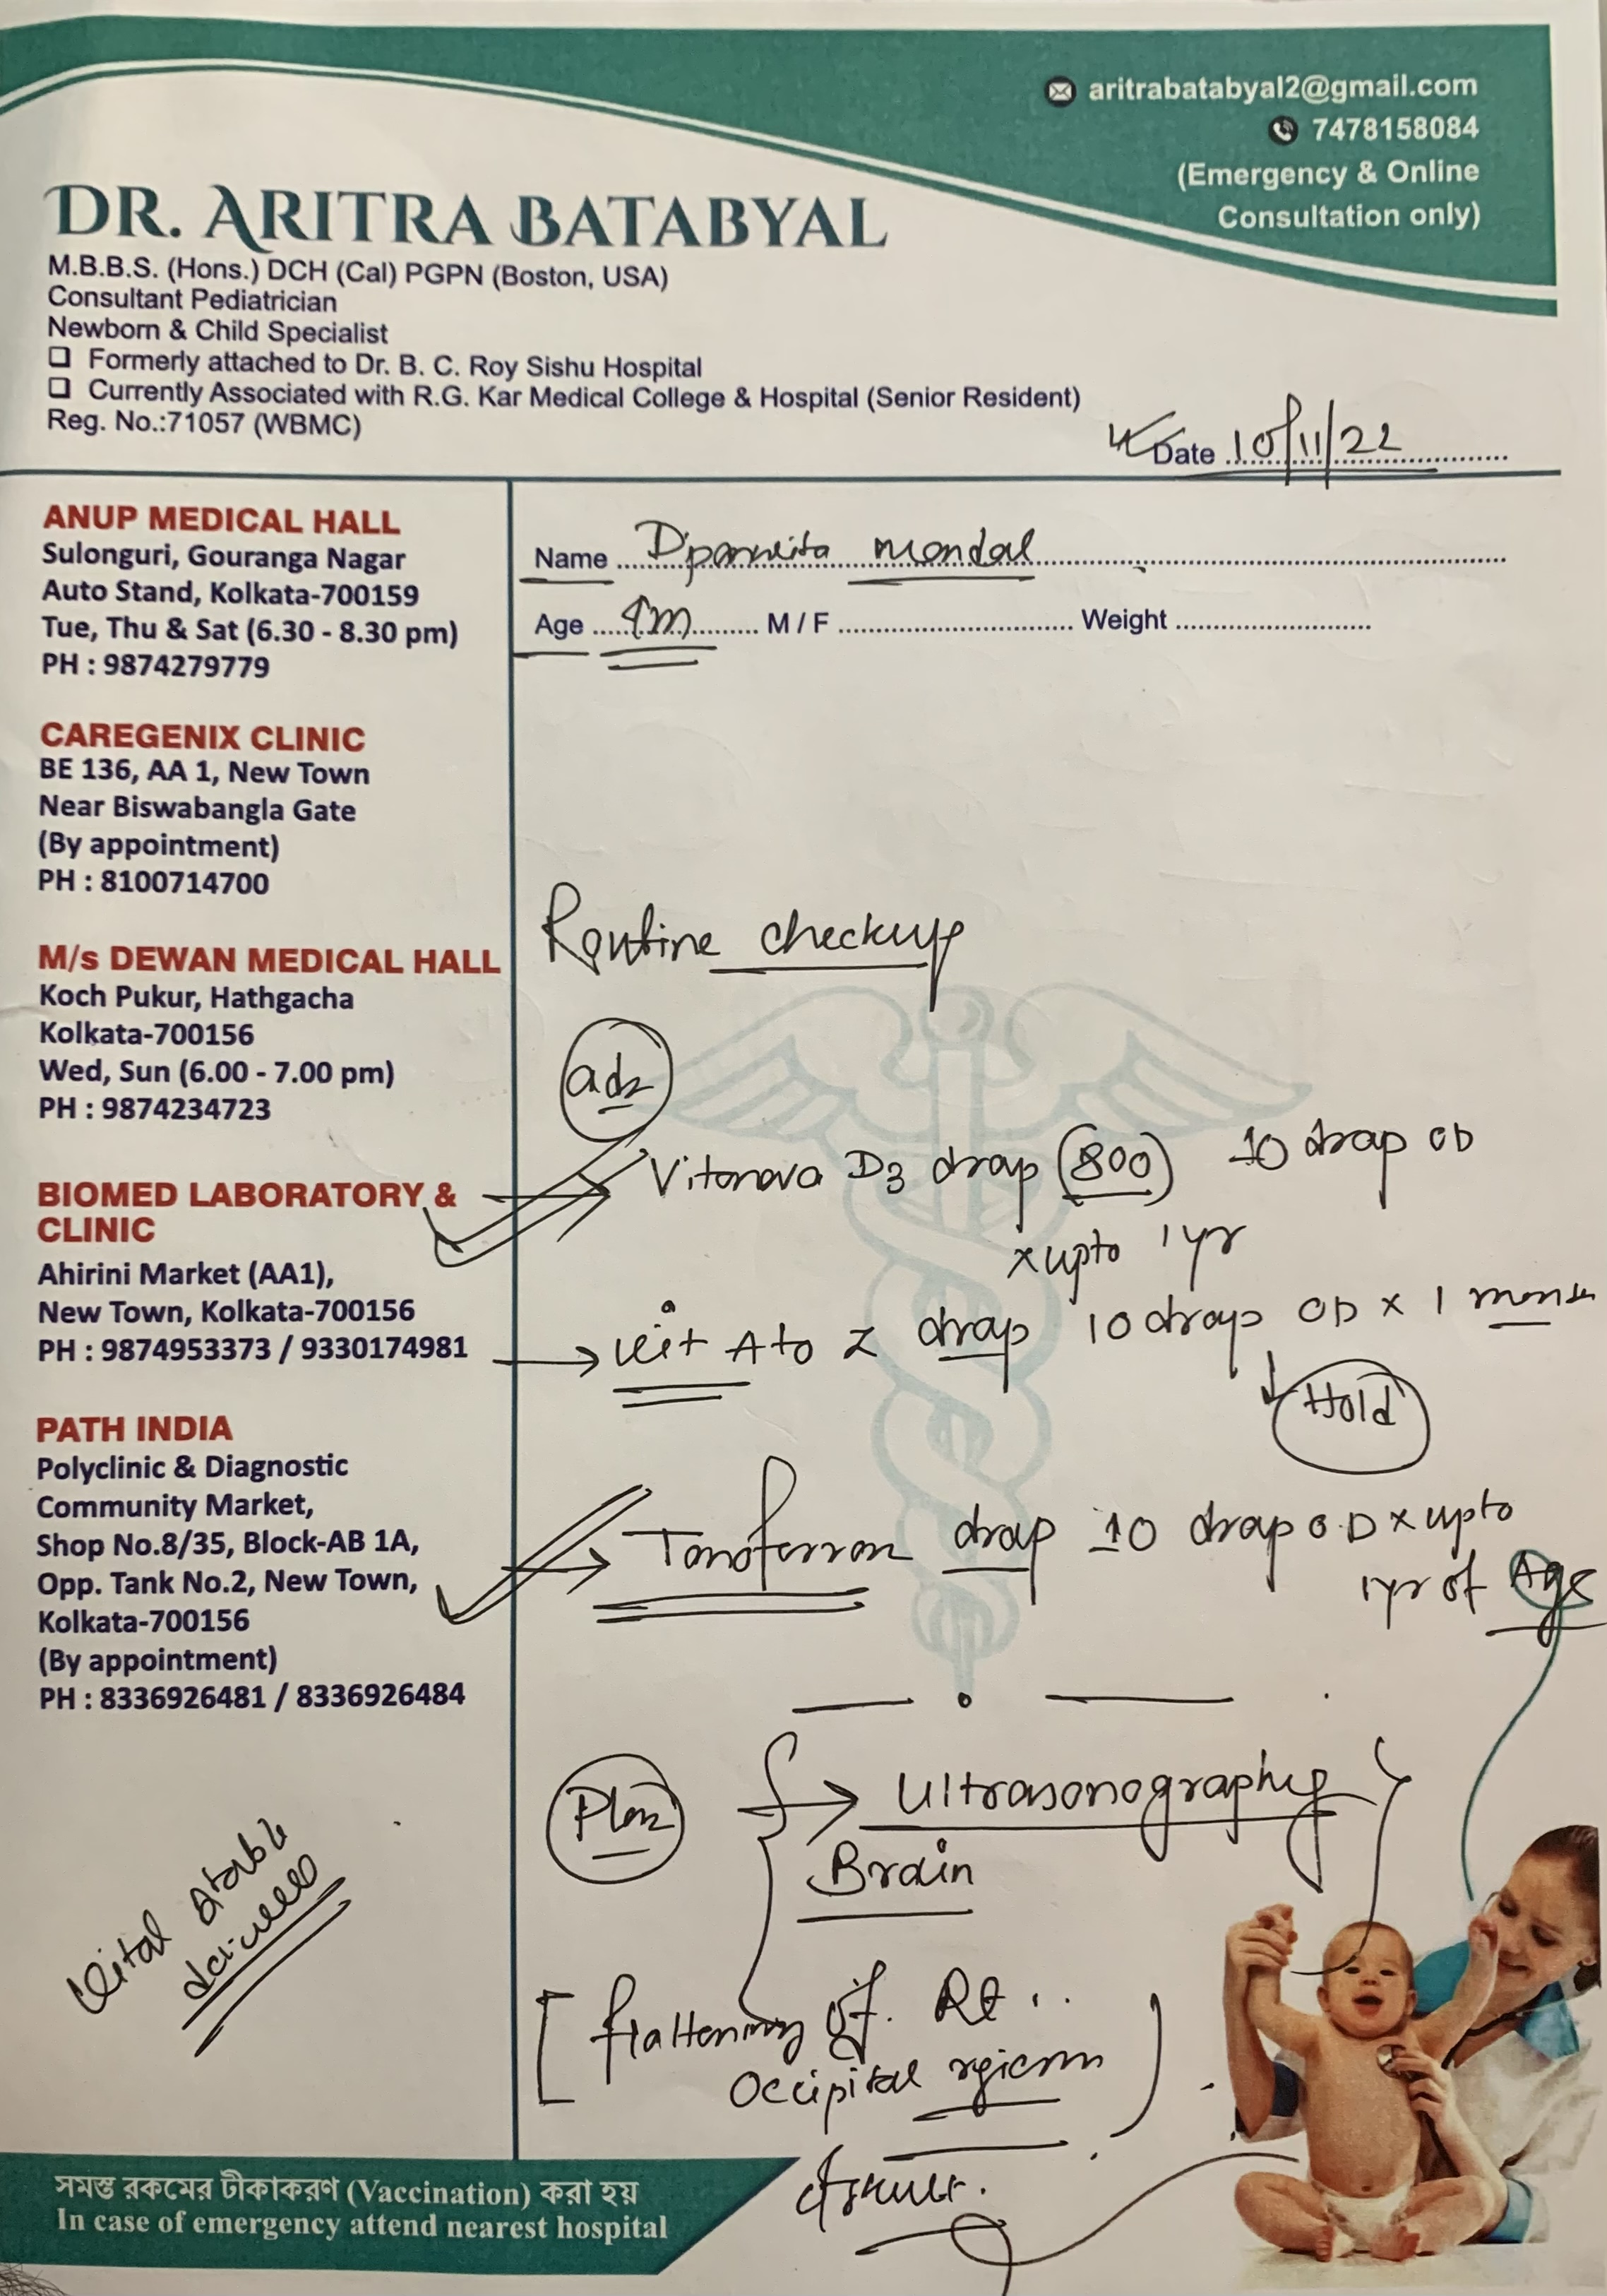 aritrabatabyal2@gmail.com
7478158084
(Emergency & Online
Consultation only)
DR. ARITRA BATABYAL
M.B.B.S. (Hons.) DCH (Cal) PGPN (Boston, USA)
Consultant Pediatrician
Newborn & Child Specialist
❑ Formerly attached to Dr. B. C. Roy Sishu Hospital
❑ Currently Associated with R.G. Kar Medical College & Hospital (Senior Resident)
Reg. No.:71057 (WBMC)
Date 10/11/22
ANUP MEDICAL HALL
Sulonguri, Gouranga Nagar
Auto Stand, Kolkata-700159
Tue, Thu & Sat (6.30 - 8.30 pm)
PH : 9874279779
CAREGENIX CLINIC
BE 136, AA 1, New Town
Near Biswabangla Gate
(By appointment)
PH : 8100714700
M/s DEWAN MEDICAL HALL
Koch Pukur, Hathgacha
Kolkata-700156
Wed, Sun (6.00 - 7.00 pm)
PH : 9874234723
BIOMED LABORATORY &
CLINIC
Ahirini Market (AA1),
New Town, Kolkata-700156
PH : 9874953373 / 9330174981
PATH INDIA
Polyclinic & Diagnostic
Community Market,
Shop No.8/35, Block-AB 1A,
Opp. Tank No.2, New Town,
Kolkata-700156
(By appointment)
PH : 8336926481 / 8336926484
Vital stable
Name mondal
Age M / F Weight
Routine checkup
adv
Vitanova D3 drop (800) 10 drop OD
x upto 1 yr
vit A to Z drop 10 drops OD x 1 month
Hold
Tonoferron drop 10 drop O.D x upto
1yr of Age
Plan → Ultrasonography
Brain
[flattening of Rt
Occipital region]
সমস্ত রকমের টীকাকরণ (Vaccination) করা হয়
In case of emergency attend nearest hospital